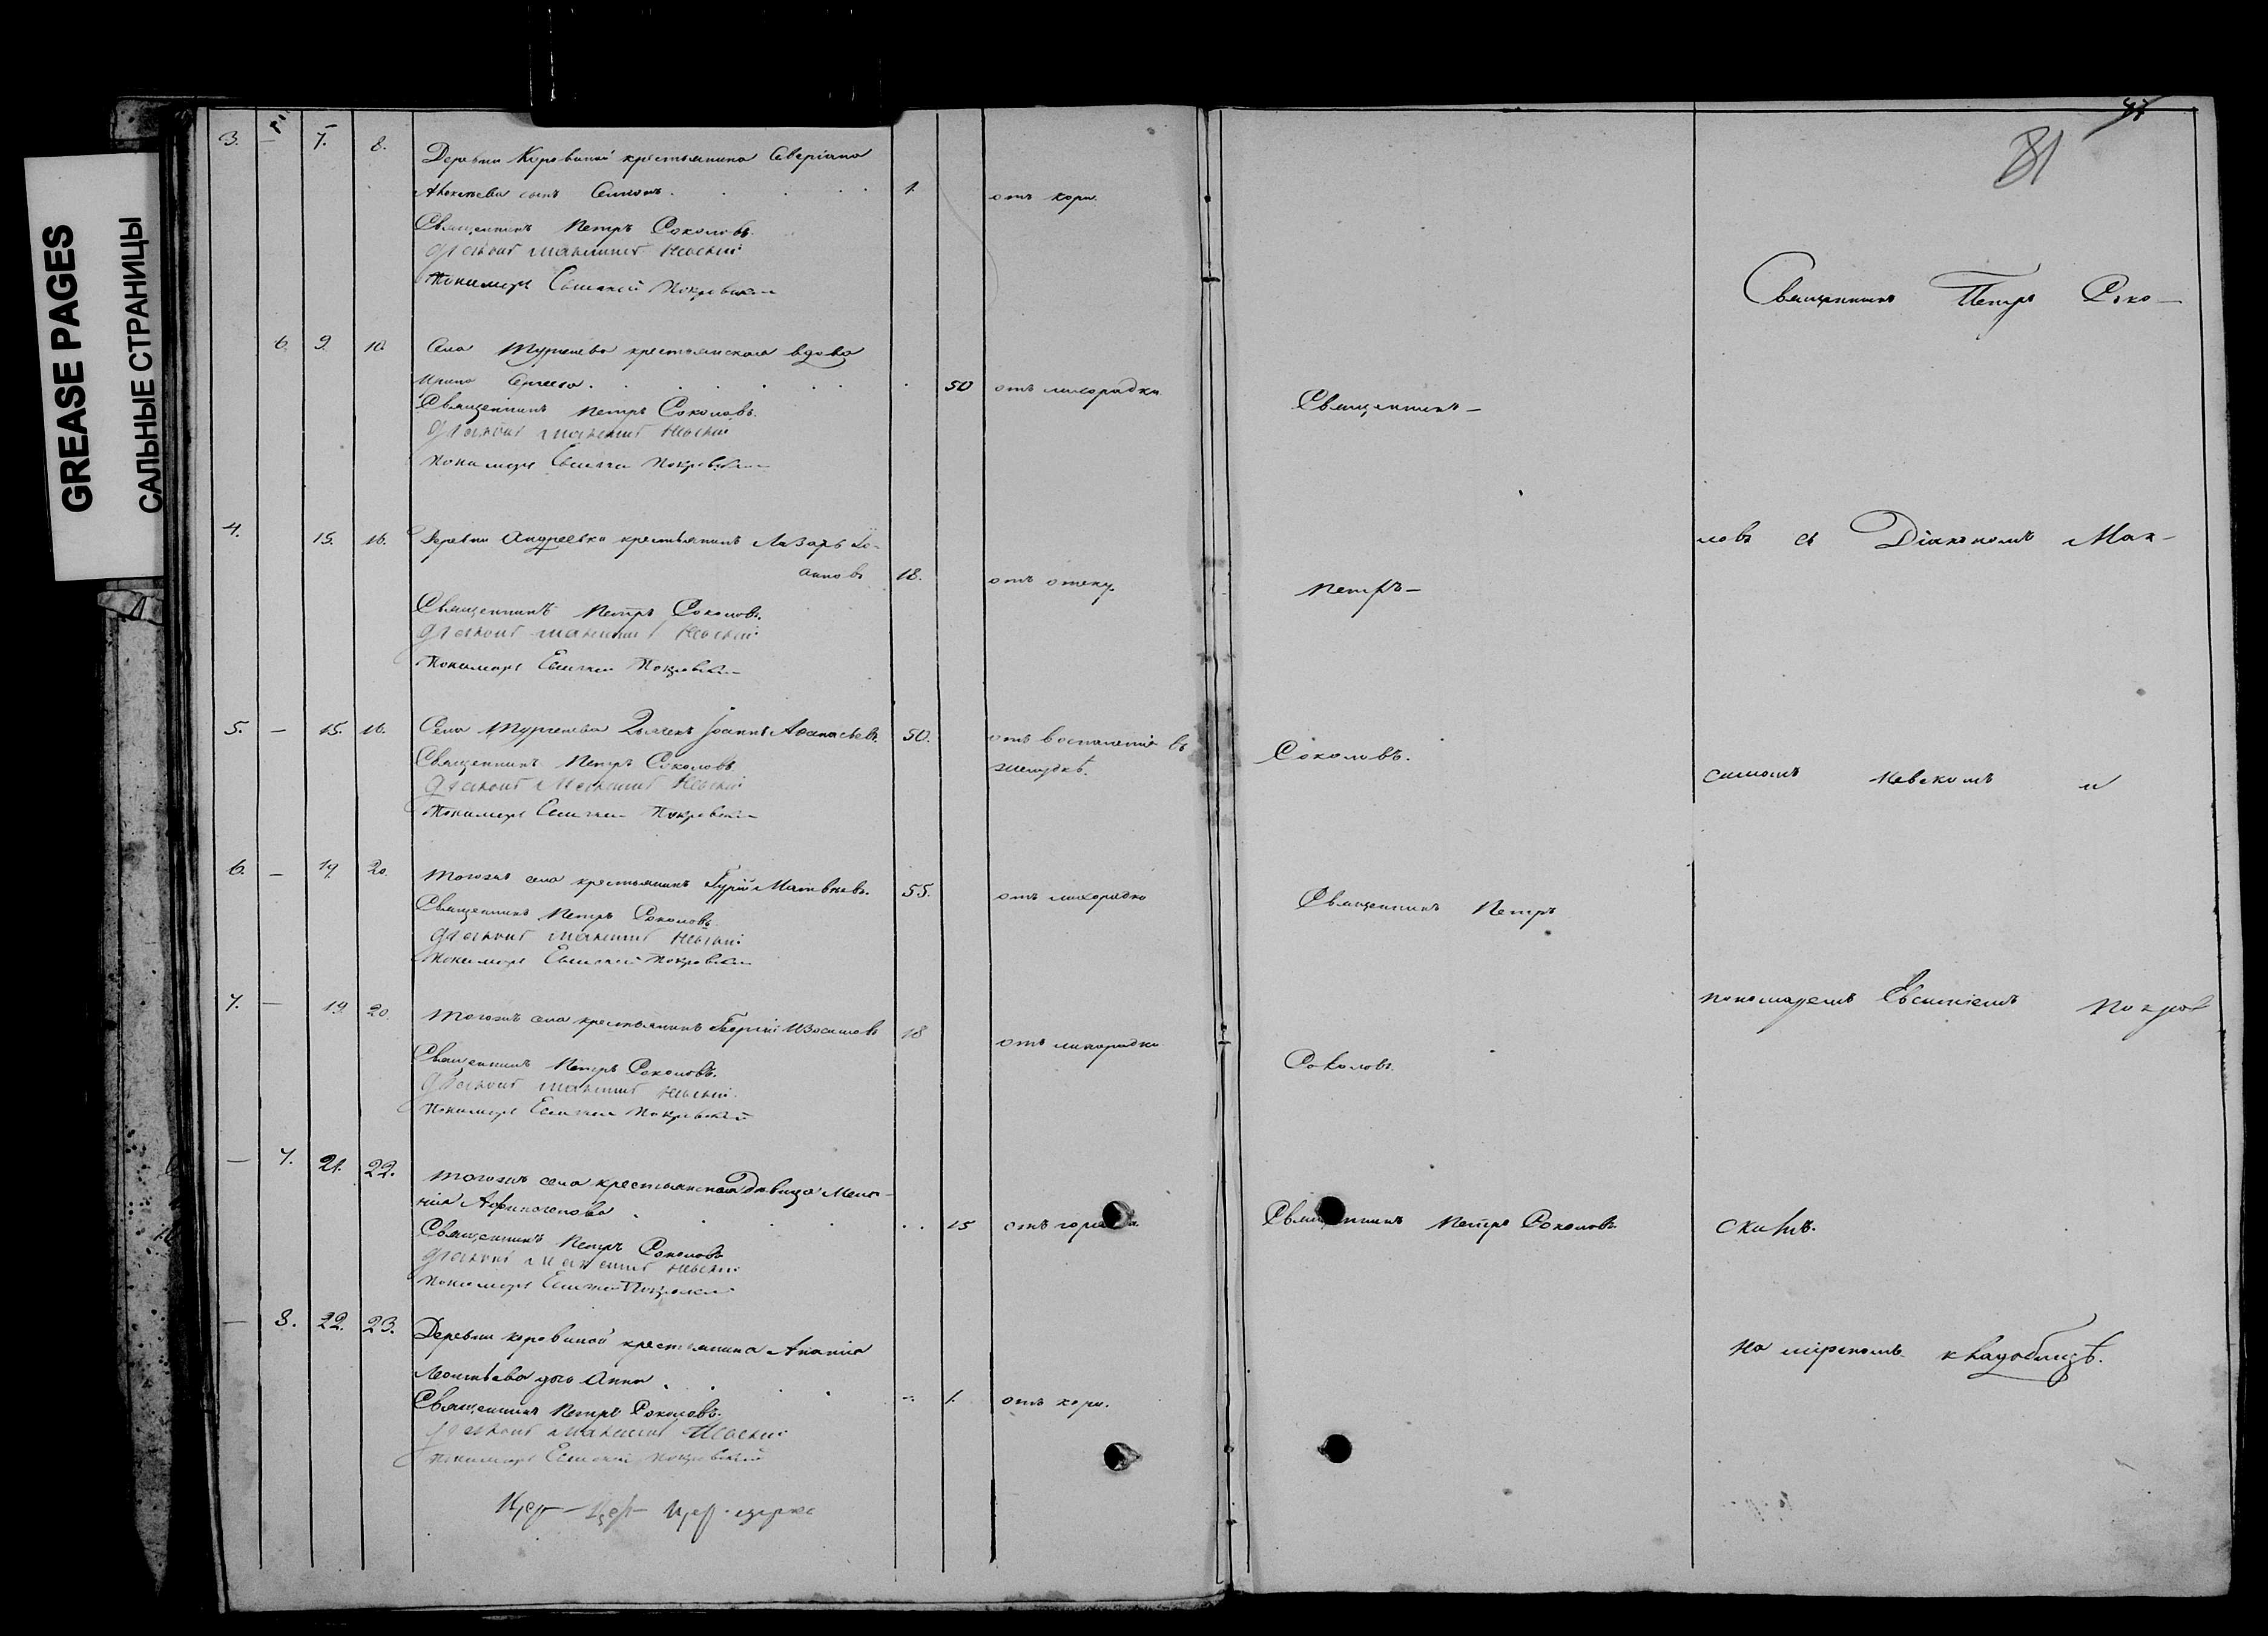 GREASE PAGES
САЛЬНЫЕ СТРАНИЦЫ
81
3. — 7. 8. Деревни Коровиной крестьянина Северіана
сынъ Симонъ 1. отъ кори.
Священникъ Петръ Соколовъ.
Діаконъ Максимъ Невскій
Пономарь Евсигней Покровскій
6. 9. 10. Села Тургенева крестьянская вдова
Ирина Сергеева 50 отъ лихорадки
Священникъ Петръ Соколовъ.
Діаконъ Максимъ Невскій
Пономарь Евсигней Покровскій
4. 15. 16. Деревни Андреевки крестьянинъ Лазарь Іо-
анновъ 18. отъ отеку.
Священникъ Петръ Соколовъ.
Діаконъ Максимъ Невскій
Пономарь Евсигней Покровскій
5. — 15. 16. Села Тургенева Дьячекъ Іоаннъ Афанасьевъ. 50. отъ воспаленія въ
желудкѣ.
Священникъ Петръ Соколовъ
Діаконъ Максимъ Невскій
Пономарь Евсигней Покровскій
6. — 19. 20. Тогожъ села крестьянинъ Гурій Матвѣевъ. 55. отъ лихорадки
Священникъ Петръ Соколовъ
Діаконъ Максимъ Невскій
Пономарь Евсигней Покровскій
7. — 19. 20. Тогожъ села крестьянинъ Георгій Изосимовъ 18 отъ лихорадки
Священникъ Петръ Соколовъ.
Діаконъ Максимъ Невскій
Пономарь Евсигней Покровскій
— 7. 21. 22. Тогожъ села крестьянская дѣвица Мела-
нія Афиногенова 15 отъ
Священникъ Петръ Соколовъ
Діаконъ Максимъ Невскій
Пономарь Евсигней Покровскій
— 8. 22. 23. Деревни Коровиной крестьянина Ананія
дочь Анна 1. отъ кори.
Священникъ Петръ Соколовъ.
Діаконъ Максимъ Невскій
Пономарь Евсигней Покровскій
Цер — Цер — Цер
Священникъ —
Петръ —
Соколовъ.
Священникъ Петръ
Соколовъ.
Священникъ Петръ Соколовъ
Священникъ Петръ Соко—
ловъ съ Діакономъ Мак-
симомъ Невскимъ и
пономаремъ Евсигніемъ Покров
скимъ.
На мірскомъ кладбищѣ.